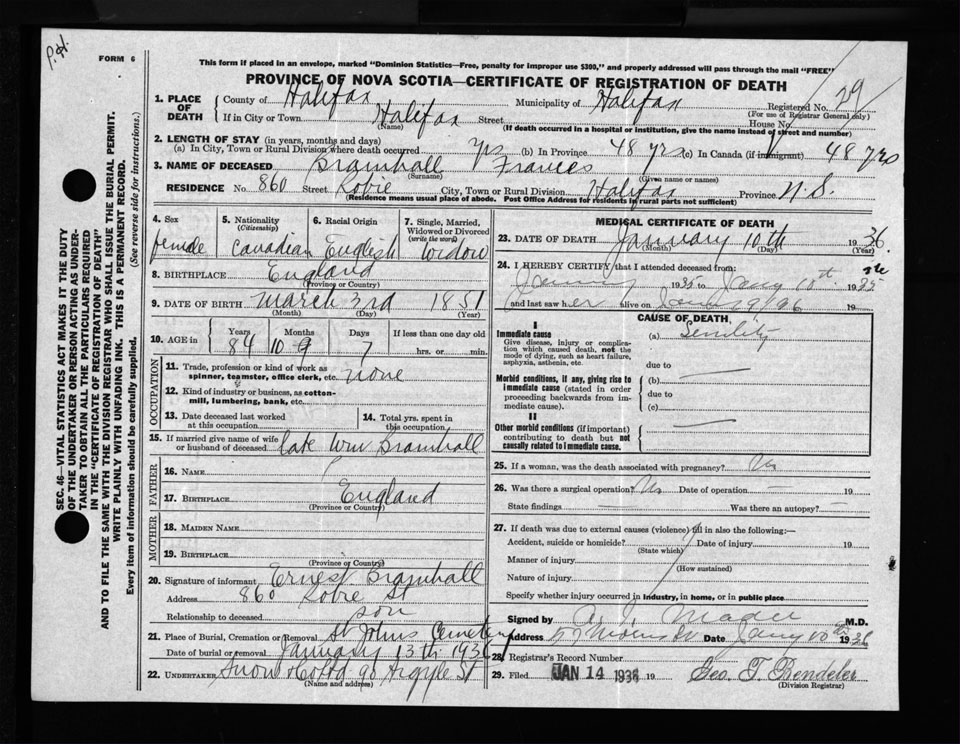 P.H.
FORM 6
This form if placed in an envelope, marked "Dominion Statistics—Free, penalty for improper use $300," and properly addressed will pass through the mail "FREE"
PROVINCE OF NOVA SCOTIA—CERTIFICATE OF REGISTRATION OF DEATH
1. PLACE OF DEATH County of Halifax Municipality of Halifax Registered No. 29
(For use of Registrar General only)
If in City or Town Halifax Street House No.
(Name) (If death occurred in a hospital or institution, give the name instead of street and number)
2. LENGTH OF STAY (in years, months and days)
(a) In City, Town or Rural Division where death occurred yrs (b) In Province 48 yrs (c) In Canada (if immigrant) 48 yrs
3. NAME OF DECEASED Bramhall Frances
(Surname) (Given name or names)
RESIDENCE No. 860 Street Robie City, Town or Rural Division Halifax Province N.S.
(Residence means usual place of abode. Post Office Address for residents in rural parts not sufficient)
4. Sex 5. Nationality 6. Racial Origin 7. Single, Married, Widowed or Divorced
(Citizenship) (write the word)
female Canadian English Widow
8. BIRTHPLACE England
(Province or Country)
9. DATE OF BIRTH March 3rd 1851
(Month) (Day) (Year)
10. AGE in Years Months Days If less than one day old
84 10 9 7 hrs. or min.
OCCUPATION
11. Trade, profession or kind of work as spinner, teamster, office clerk, etc. none
12. Kind of industry or business, as cotton-mill, lumbering, bank, etc.
13. Date deceased last worked at this occupation
14. Total yrs. spent in this occupation
15. If married give name of wife or husband of deceased late Wm Bramhall
FATHER
16. NAME
17. BIRTHPLACE England
(Province or Country)
MOTHER
18. MAIDEN NAME
19. BIRTHPLACE
(Province or Country)
20. Signature of informant Ernest Bramhall
Address 860 Robie St
Relationship to deceased son
21. Place of Burial, Cremation or Removal St Johns Cemetery
Date of burial or removal January 13th 1936
22. UNDERTAKER Snow & Co Ltd 90 Argyle St
(Name and address)
MEDICAL CERTIFICATE OF DEATH
23. DATE OF DEATH January 10th 1936
(Month) (Day) (Year)
24. I HEREBY CERTIFY that I attended deceased from:
January 1935 to Jany 10th 19
and last saw her alive on 19
CAUSE OF DEATH
I
Immediate cause (a) Senility
Give disease, injury or complication which caused death, not the mode of dying, such as heart failure, asphyxia, asthenia, etc.
due to
Morbid conditions, if any, giving rise to immediate cause (stated in order proceeding backwards from immediate cause).
(b)
due to
(c)
II
Other morbid conditions (if important) contributing to death but not causally related to immediate cause.
25. If a woman, was the death associated with pregnancy? No
26. Was there a surgical operation? No Date of operation 19
State findings Was there an autopsy?
27. If death was due to external causes (violence) fill in also the following:—
Accident, suicide or homicide? Date of injury 19
(State which)
Manner of injury
(How sustained)
Nature of injury
Specify whether injury occurred in industry, in home, or in public place
Signed by A. I. Mader M.D.
Address 57 Morris St Date Jany 10th 1936
28. Registrar's Record Number
29. Filed JAN 14 1936 19 Geo. T. Bendeler
(Division Registrar)
SEC. 46—VITAL STATISTICS ACT MAKES IT THE DUTY
OF THE UNDERTAKER OR PERSON ACTING AS UNDER-
TAKER TO OBTAIN ALL THE PARTICULARS REQUIRED
IN THE "CERTIFICATE OF REGISTRATION OF DEATH"
AND TO FILE THE SAME WITH THE DIVISION REGISTRAR WHO SHALL ISSUE THE BURIAL PERMIT.
WRITE PLAINLY WITH UNFADING INK. THIS IS A PERMANENT RECORD.
Every item of information should be carefully supplied. (See reverse side for instructions.)